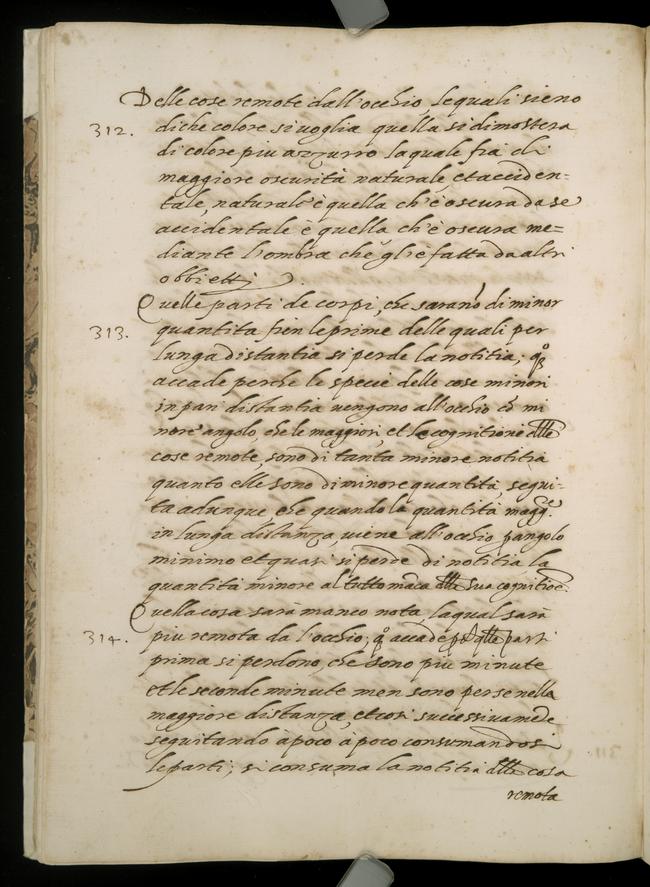 Delle cose remote dall'occhio, lequali sieno
312. di che colore si voglia quella si dimostera
di colore piu azzurro laquale fia di
maggiore oscurità naturale, et acciden=
tale, naturale è quella ch'è oscura da se
accidentale è quella ch'è oscura me=
diante l'ombra che gli è fatta da altri
obbietti.
Quelle parti de corpi, che sarano di minor
313. quantita fien le prime delle quali per
lunga distantia si perde la notitia;
accade perche le specie delle cose minori
in pari distantia vengono all'occhio cō mi
nore angolo, che le maggiori, et le cognitione dlle
cose remote, sono di tanta minore notitia
quanto elle sono di minore quantità, segui-
ta adunque che quando la quantità magg.re
in lunga distanza viene all'occhio p angolo
minimo et quasi si perde di notitia la
quantità minore al tutto māca dlla sua cognitioē.
Quella cosa sarà manco nota, laqual sarà
314. piu remota da l'occhio; accade qlle parti
prima si perdono, che sono piu minute
et le seconde minute men sono perse nella
maggiore distanza, et cosi successivamēte
seguitando à poco à poco consumandosi
le parti; si consuma la notitia dlla cosa
remota